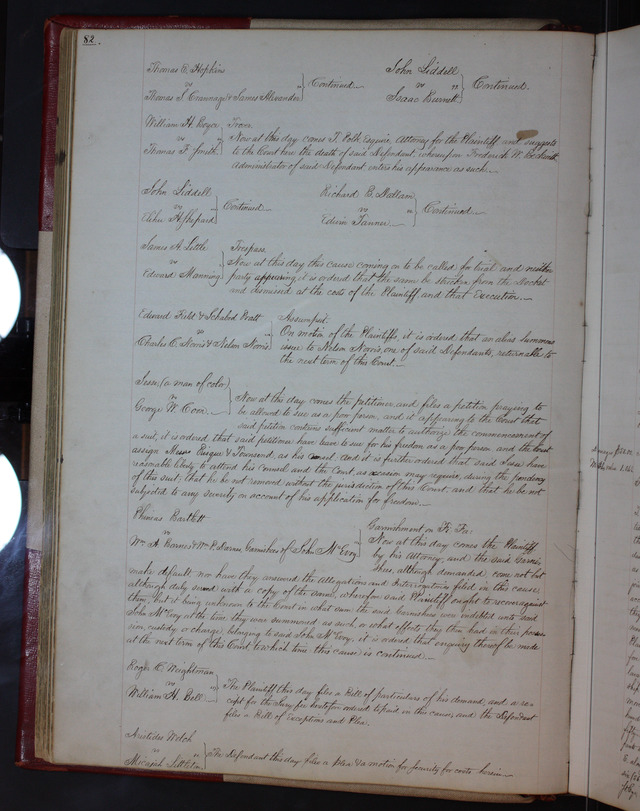 82.
Thomas E. Hopkins
vs } Continued.
Thomas J. & James Alexander
John Liddell
vs } Continued.
Isaac Burnett
William H. Boyce Trover
vs Now at this day comes T. Polk Esquire, Attorney for the Plaintiff and suggests
Thomas F. Smith to the Court here the death of said Defendant, whereupon Frederick W.
Administrator of said Defendant enters his appearance as such.
John Liddell
vs } Continued.
Shepard
Richard B. Dallam
vs } Continued.
Edwin Tanner
James A. Little Trespass
vs Now at this day this cause coming on to be called for trial and neither
Edward Manning party appearing it is ordered that the same be stricken from the docket
and dismissed at the costs of the Plaintiff and that Execution.
Edward Field & Pratt Assumpsit
vs On motion of the Plaintiffs, it is ordered that an alias summons
Charles C. Norris & Nelson Norris issue to Nelson Norris, one of said Defendants, returnable to
the next term of this Court.
Jesse (a man of color)
vs Now at this day comes the petitioner and files a petition praying to
George W. Coon be allowed to sue as a poor person, and it appearing to the Court that
said petition contains sufficient matter to authorize the commencement of
a suit, it is ordered that said petitioner have leave to sue for his freedom as a poor person and the Court
assign Messrs & Townsend, as his counsel. And it is further ordered that said Jesse have
reasonable liberty to attend his counsel and the Court, as occasion may require, during the pendency
of this suit; that he be not removed without the jurisdiction of this Court, and that he be not
subjected to any severity on account of his application for freedom.
Phineas Bartlett
vs Garnishment on Fi. Fa.
Wm. A. Barnes & Wm. P. Garnishees of John McEvoy Now at this day comes the Plaintiff
by his Attorney, and the said Garnis-
hees, although demanded, come not but
make default, nor have they answered the allegations and Interrogatories filed in this cause,
although duly served with a copy of the same, wherefore said Plaintiff ought to recover against
them; but it being unknown to the Court in what sum the said Garnishees were indebted unto said
John McEvoy at the time they was summoned as such, or what effects they then had in their posses-
sion, custody or charge belonging to said John McEvoy, it is ordered that enquiry thereof be made
at the next term of this Court to which time this cause is continued.
Roger C. Weightman
vs The Plaintiff this day files a Bill of particulars of his demand, and a re-
William H. Bell ceipt for the Jury fee heretofore ordered to be paid in this cause, and the Defendant
files a Bill of Exceptions and Plea.
Aristides Welch
vs The Defendant this day files a plea & a motion for security for costs herein.
Micajah